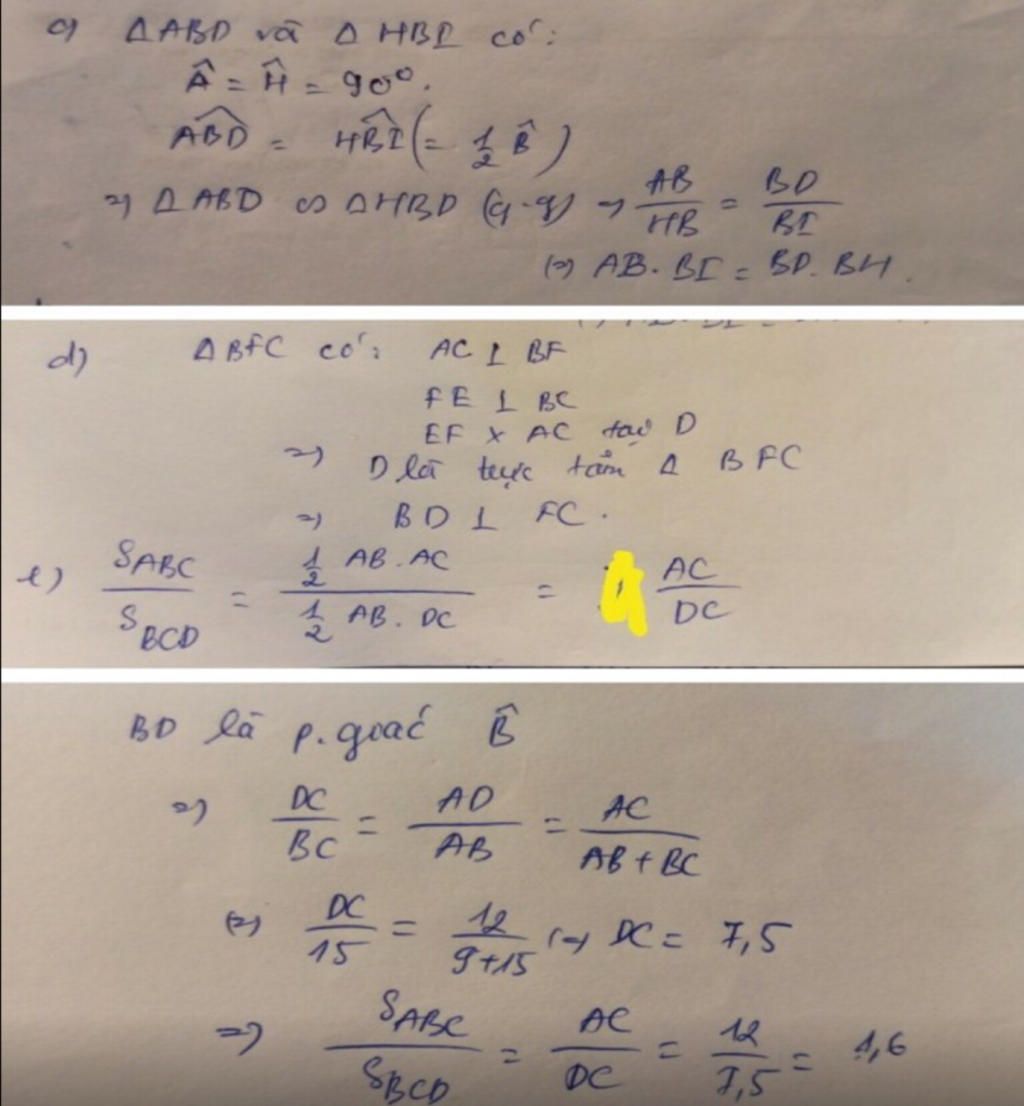 c) ΔABD và Δ HBI có:
Â = Ĥ = 90°.
\widehat{ABD} = \widehat{HBI} (= \frac{1}{2} \hat{B})
=> Δ ABD ∽ ΔHBD (g-g) → \frac{AB}{HB} = \frac{BD}{BI}
(=) AB.BI = BD.BH.
d) ΔBFC có: AC ⊥ BF
FE ⊥ BC
EF × AC tại D
=> D là trực tâm Δ BFC
=> BD ⊥ FC.
e) \frac{S_{ABC}}{S_{BCD}} = \frac{\frac{1}{2} AB.AC}{\frac{1}{2} AB.DC} = \frac{AC}{DC}
BD là p.giác \hat{B}
=> \frac{DC}{BC} = \frac{AD}{AB} = \frac{AC}{AB+BC}
(=) \frac{DC}{15} = \frac{12}{9+15} (=) DC = 7,5
=> \frac{S_{ABC}}{S_{BCD}} = \frac{AC}{DC} = \frac{12}{7,5} = 1,6